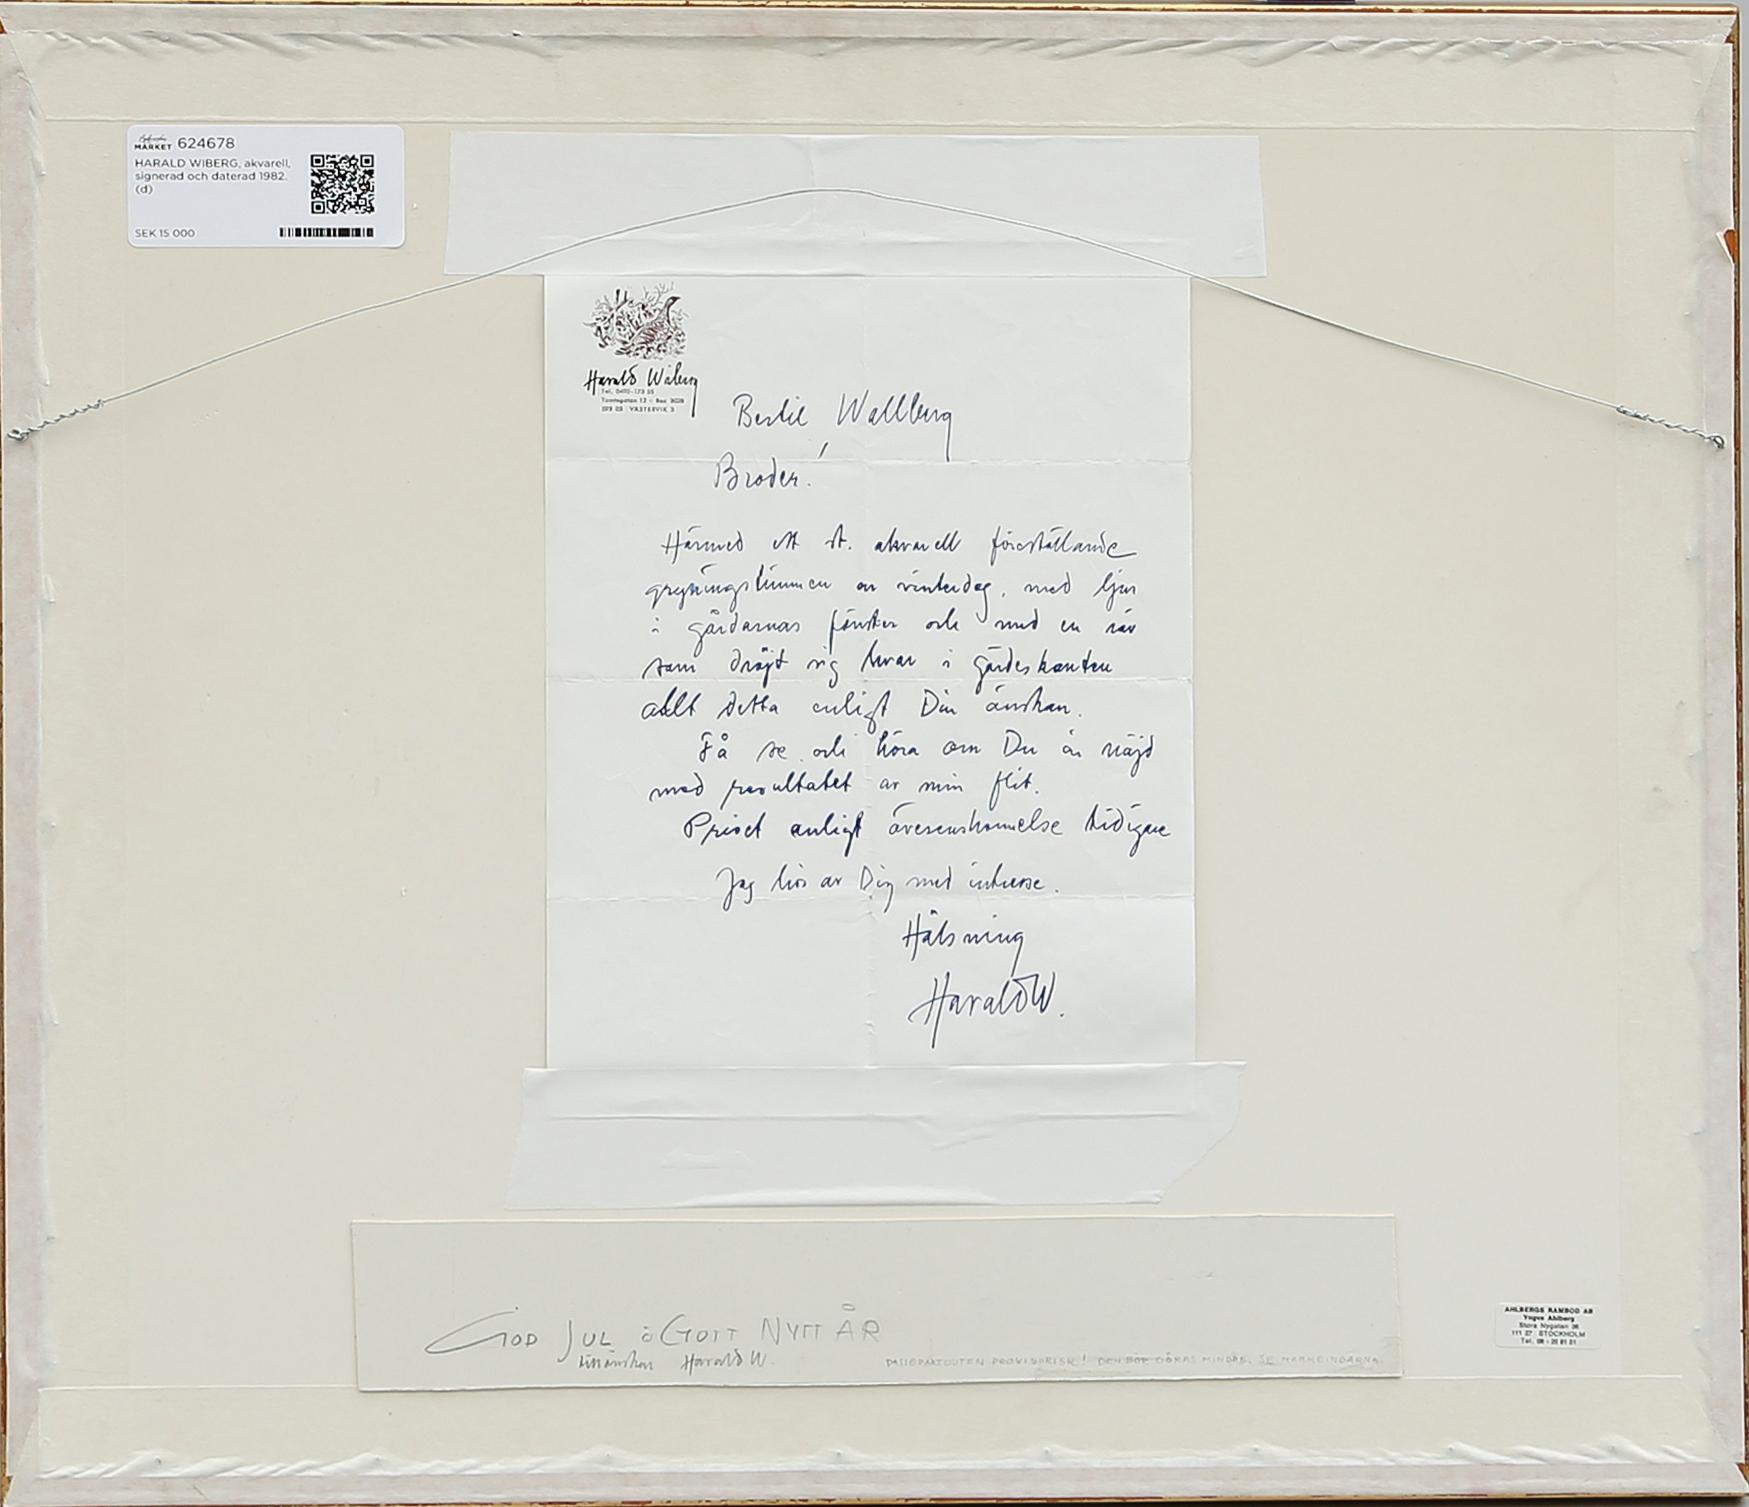 MARKET 624678
HARALD WIBERG, akvarell,
signerad och daterad 1982.
(d)
SEK 15 000
Harald Wiberg
Tel. 0490-173 55
Tomtegatan 12 - Box 3028
593 03 VÄSTERVIK 3
Bertil Wallberg
Broder!
Härmed ett st. akvarell föreställande
gryningstimmen en vinterdag, med ljus
i gårdarnas fönster och med en räv
som dröjt sig kvar i gärdeskanten
allt detta enligt Din önskan.
Få se och höra om Du är nöjd
med resultatet av min flit.
Priset enligt överenskommelse tidigare
Jag hör av Dig med intresse.
Hälsning
Harald W.
GOD JUL o GOTT NYTT ÅR
tillönskar Harald W.
PASSEPARTOUTEN PROVISORISK! DEN BÖR GÖRAS MINDRE. SE MARKERINGARNA.
AHLBERGS RAMBOD AB
Yngve Ahlberg
Stora Nygatan 36
111 27 STOCKHOLM
Tel. 08 - 20 81 01